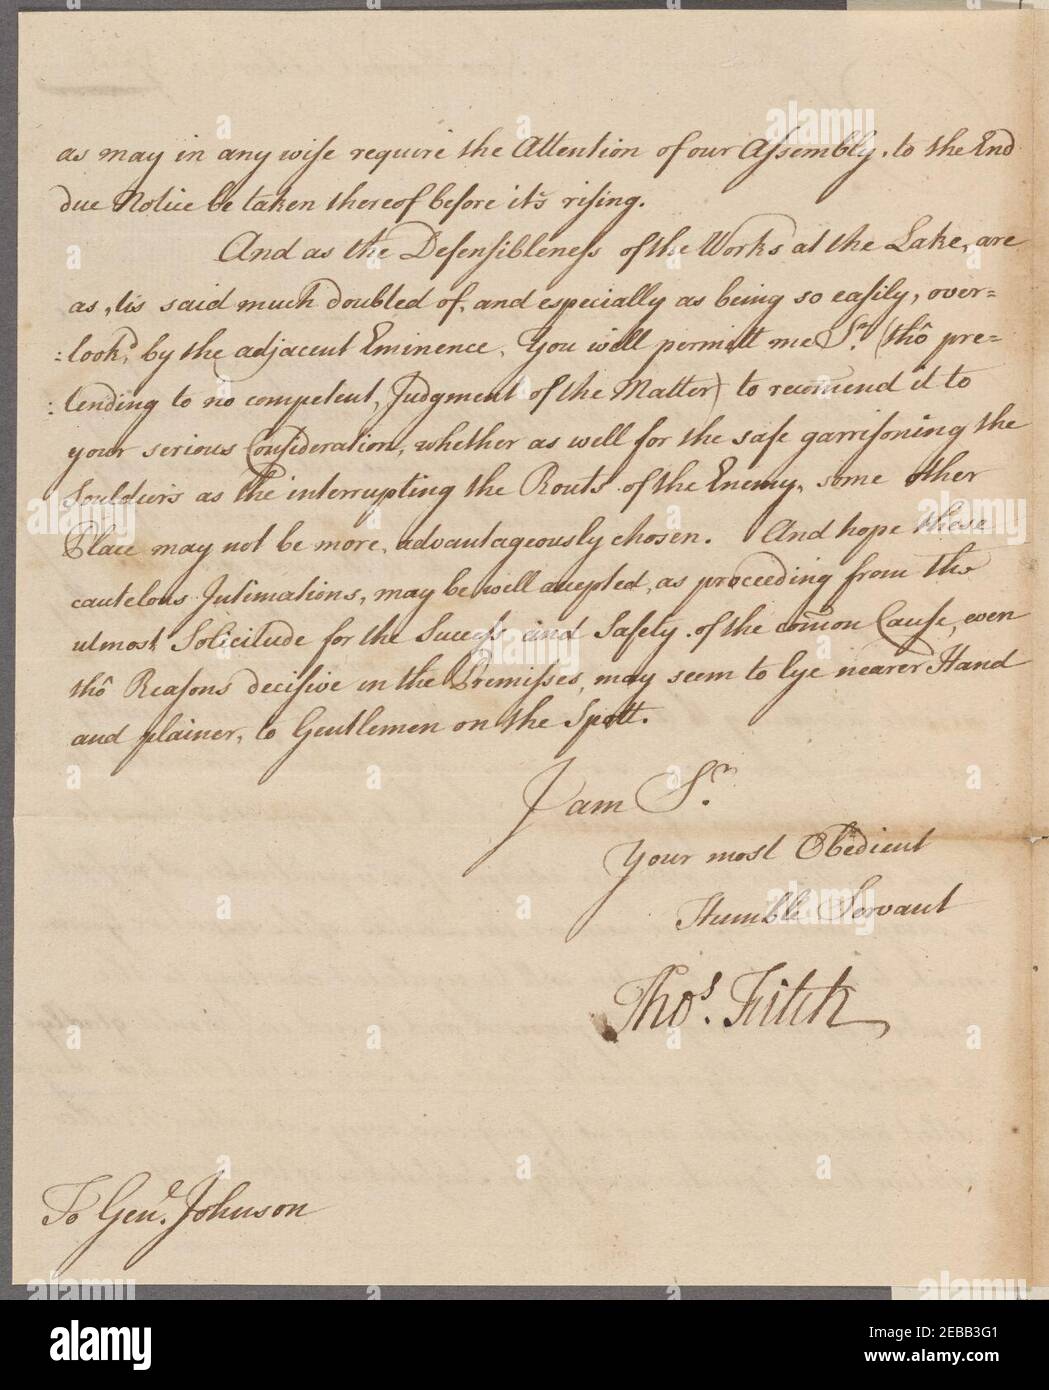 as may in any wise require the Attention of our Assembly, to the End
due Notice be taken thereof before it's rising.
And as the Defensibleness of the Works at the Lake, are
as, tis said much doubted of, and especially as being so easily, over=
=look'd by the adjacent Eminence, You will permitt me Sr. (thô pre=
=tending to no competent, Judgment of the Matter) to recomend it to
your serious Consideration, whether as well for the safe garrisoning the
Souldiers as the interrupting the Routs of the Enemy, some other
Place may not be more, advantageously chosen. And hope these
cautelous Intimations, may be well accepted, as proceeding from the
utmost Solicitude for the Success and Safety of the comon Cause, even
thô Reasons decisive in the Premisses, may seem to lye nearer Hand
and plainer, to Gentlemen on the Spott.
I am Sr.
Your most Obedient
Humble Servant
Thos. Fitch
To Genl. Johnson
alamy
Image ID: 2EBB3G1
www.alamy.com